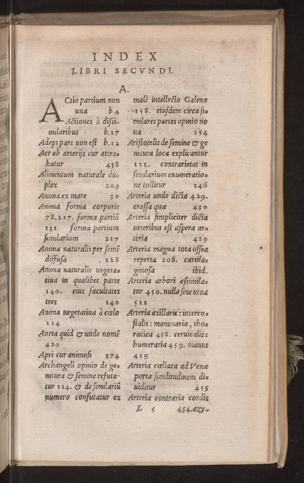 INDEX
LIBRI SECVNDI.
A.
ACtio partium non
una b 4
Actiones à dissi-
milaribus b.17
Adeps pars non est b.12
Aër ab arterijs cur attra-
hatur 438
Alimentum naturale du-
plex 209
Anima ex mare 30
Anima forma corporis
78.217. forma partiũ
131 forma partium
similarium 217
Anima naturalis per semẽ
diffusa 128
Anima naturalis vegeta-
tiua in qualibet parte
140. eius facultates
tres 140
Anima vegetatiua à cœlo
114
Aorta quid & unde nomẽ
429
Apri cur animosi 374
Archangeli opinio de ge-
nitura & semine refuta-
tur 114. & de similariũ
numero confutatur ex
malè intellecto Galeno
158. eiusdem circa si-
milares partes opinio no
ua 154
Aristotelis de semine & ge
nitura loca explicantur
111. contrarietas in
similarium enumeratio-
ne tollitur 146
Arteria unde dicta 429.
crassa quæ 430
Arteria simpliciter dicta
uteribus est aspera ar-
teria 429
Arteria magna tota ossea
reperta 208. cartila-
ginosa ibid.
Arteria arbori assimila-
tur 450. nulla sine uena
511
Arteria axillaris: interco-
stalis: mammaria, tho-
racica 458. ceruicalis:
humeraria 459. manus
459
Arteria cœliaca ad Venæ
portæ similitudinem di-
uiditur 455
Arteria contraria cordis
L 5 454.azy-